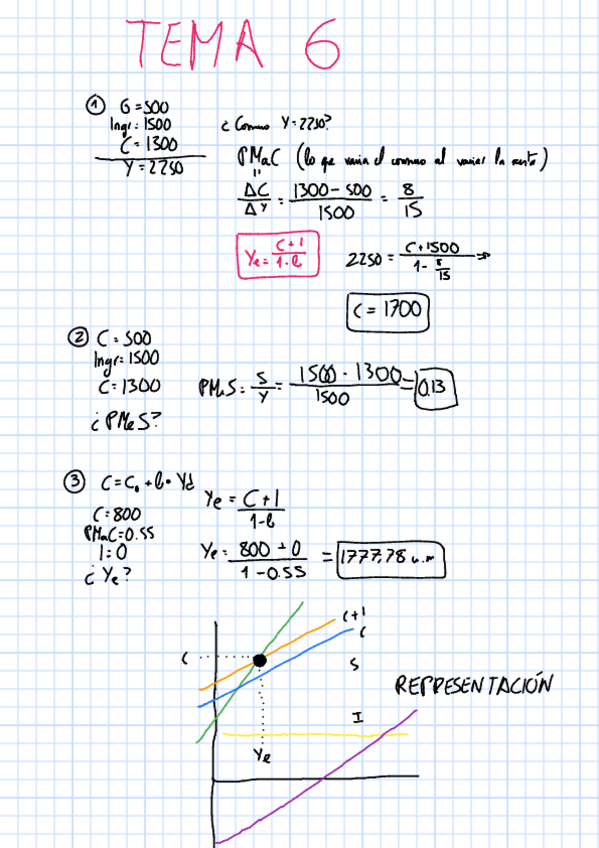 TEMA 6
① G = 500
Ingr: 1500
C = 1300
Y = 2250
¿ Consumo Y = 2250?
PMaC (lo que varia el consumo al variar la renta)
ΔC/ΔY = (1300 - 500)/1500 = 8/15
Ye = (C + I)/(1 - b)
2250 = (C + 1500)/(1 - 8/15) ⇒
C = 1700
② C = 500
Ingr = 1500
C = 1300
¿ PMeS?
PMeS = S/Y = (1500 - 1300)/1500 = 0.13
③ C = C₀ + b · Yd
C = 800
PMaC = 0.55
I = 0
¿ Ye?
Ye = (C + I)/(1 - b)
Ye = (800 + 0)/(1 - 0.55) = 1777,78 u.m
C + I
C
C
S
REPRESENTACIÓN
I
Ye